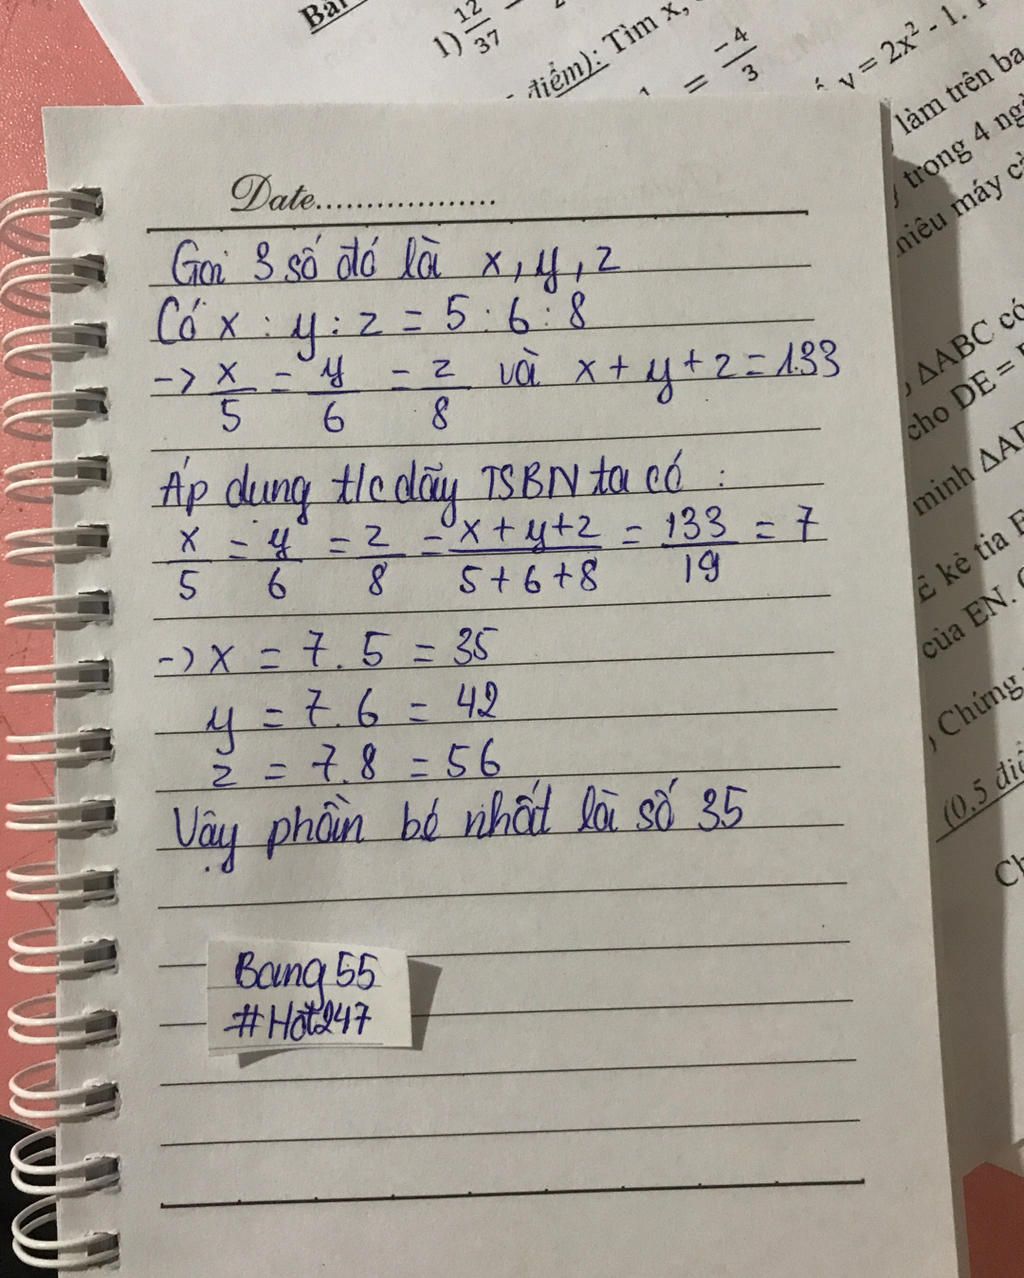 Bài
1) 12/37 -
điểm): Tìm x,
= -4/3
y = 2x² - 1.
làm trên ba
trong 4 ng
nhiêu máy c
ΔABC có
cho DE =
minh ΔA
kẻ tia E
của EN.
Chứng
(0.5 điể
Date..................
Gọi 3 số đó là x, y, z
Có x : y : z = 5 : 6 : 8
-> x/5 = y/6 = z/8 và x + y + z = 133
Áp dụng t/c dãy TSBN ta có :
x/5 = y/6 = z/8 = x + y + z/5 + 6 + 8 = 133/19 = 7
-> x = 7 . 5 = 35
y = 7 . 6 = 42
z = 7 . 8 = 56
Vậy phần bé nhất là số 35
Bang55
#Hot247